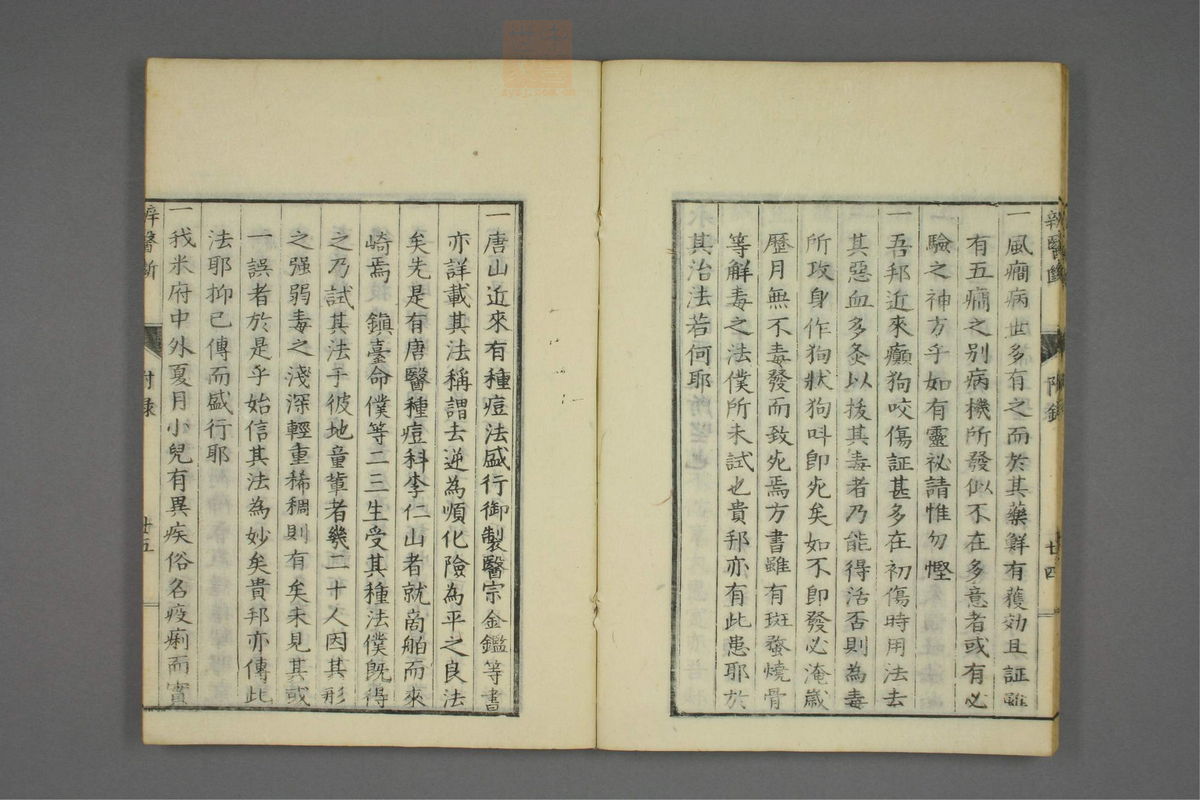 斥醫斷 附錄 廿四
一風癎病世多有之而於其藥鮮有獲効且証雖
有五癎之別病機所發似不在多意者或有必
驗之神方乎如有靈祕請惟勿慳
一吾邦近來癲狗咬傷証甚多在初傷時用法去
其惡血多灸以拔其毒者乃能得活否則為毒
所攻身作狗狀狗叫即死矣如不即發必淹歲
歷月無不毒發而致死焉方書雖有斑蝥燒骨
等解毒之法僕所未試也貴邦亦有此患耶於
其治法若何耶
一唐山近來有種痘法盛行御製醫宗金鑑等書
亦詳載其法稱謂去逆為順化險為平之良法
矣先是有唐醫種痘科李仁山者就商舶而來
崎焉 鎮臺命僕等二三生受其種法僕既得
之乃試其法手彼地童輩者幾二十人因其形
之强弱毒之淺深輕重稀稠則有矣未見其或
一誤者於是乎始信其法為妙矣貴邦亦傳此
法耶抑已傳而盛行耶
一我米府中外夏月小兒有異疾俗名疫痢而實
醫斷 附錄 廿五